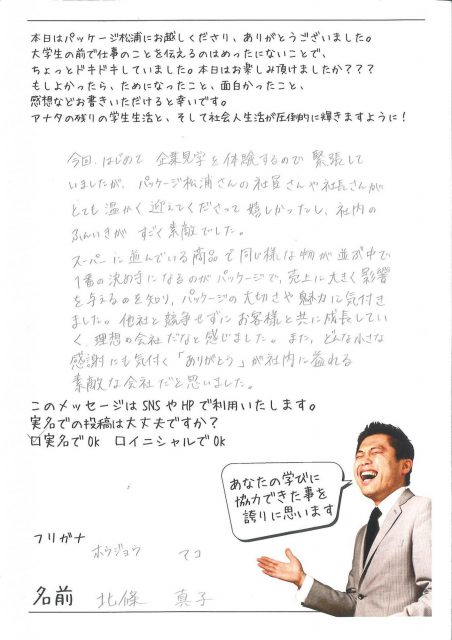 本日はパッケージ松浦にお越しくださり、ありがとうございました。
大学生の前で仕事のことを伝えるのはめったにないことで、
ちょっとドキドキしていました。本日はお楽しみ頂けましたか???
もしよかったら、ためになったこと、面白かったこと、
感想などお書きいただけると幸いです。
アナタの残りの学生生活と、そして社会人生活が圧倒的に輝きますように!
今回、はじめて企業見学を体験するので緊張して
いましたが、パッケージ松浦さんの社員さんや社長さんが
とても温かく迎えてくださって嬉しかったし、社内の
ふんいきがすごく素敵でした。
スーパーに並んでいる商品で同じ様な物が並ぶ中で
1番の決め手になるのがパッケージで、売上に大きく影響
を与えるのを知り、パッケージの大切さや魅力に気付き
ました。他社と競争せずにお客様と共に成長してい
く、理想の会社だなと感じました。また、どんな小さな
感謝にも気付く「ありがとう」が社内に溢れる
素敵な会社だと思いました。
このメッセージはSNSやHPで利用いたします。
実名での投稿は大丈夫ですか?
☑実名でOk □イニシャルでOk
あなたの学びに
協力できた事を
誇りに思います
フリガナ
ホウジョウ マコ
名前 北條 真子